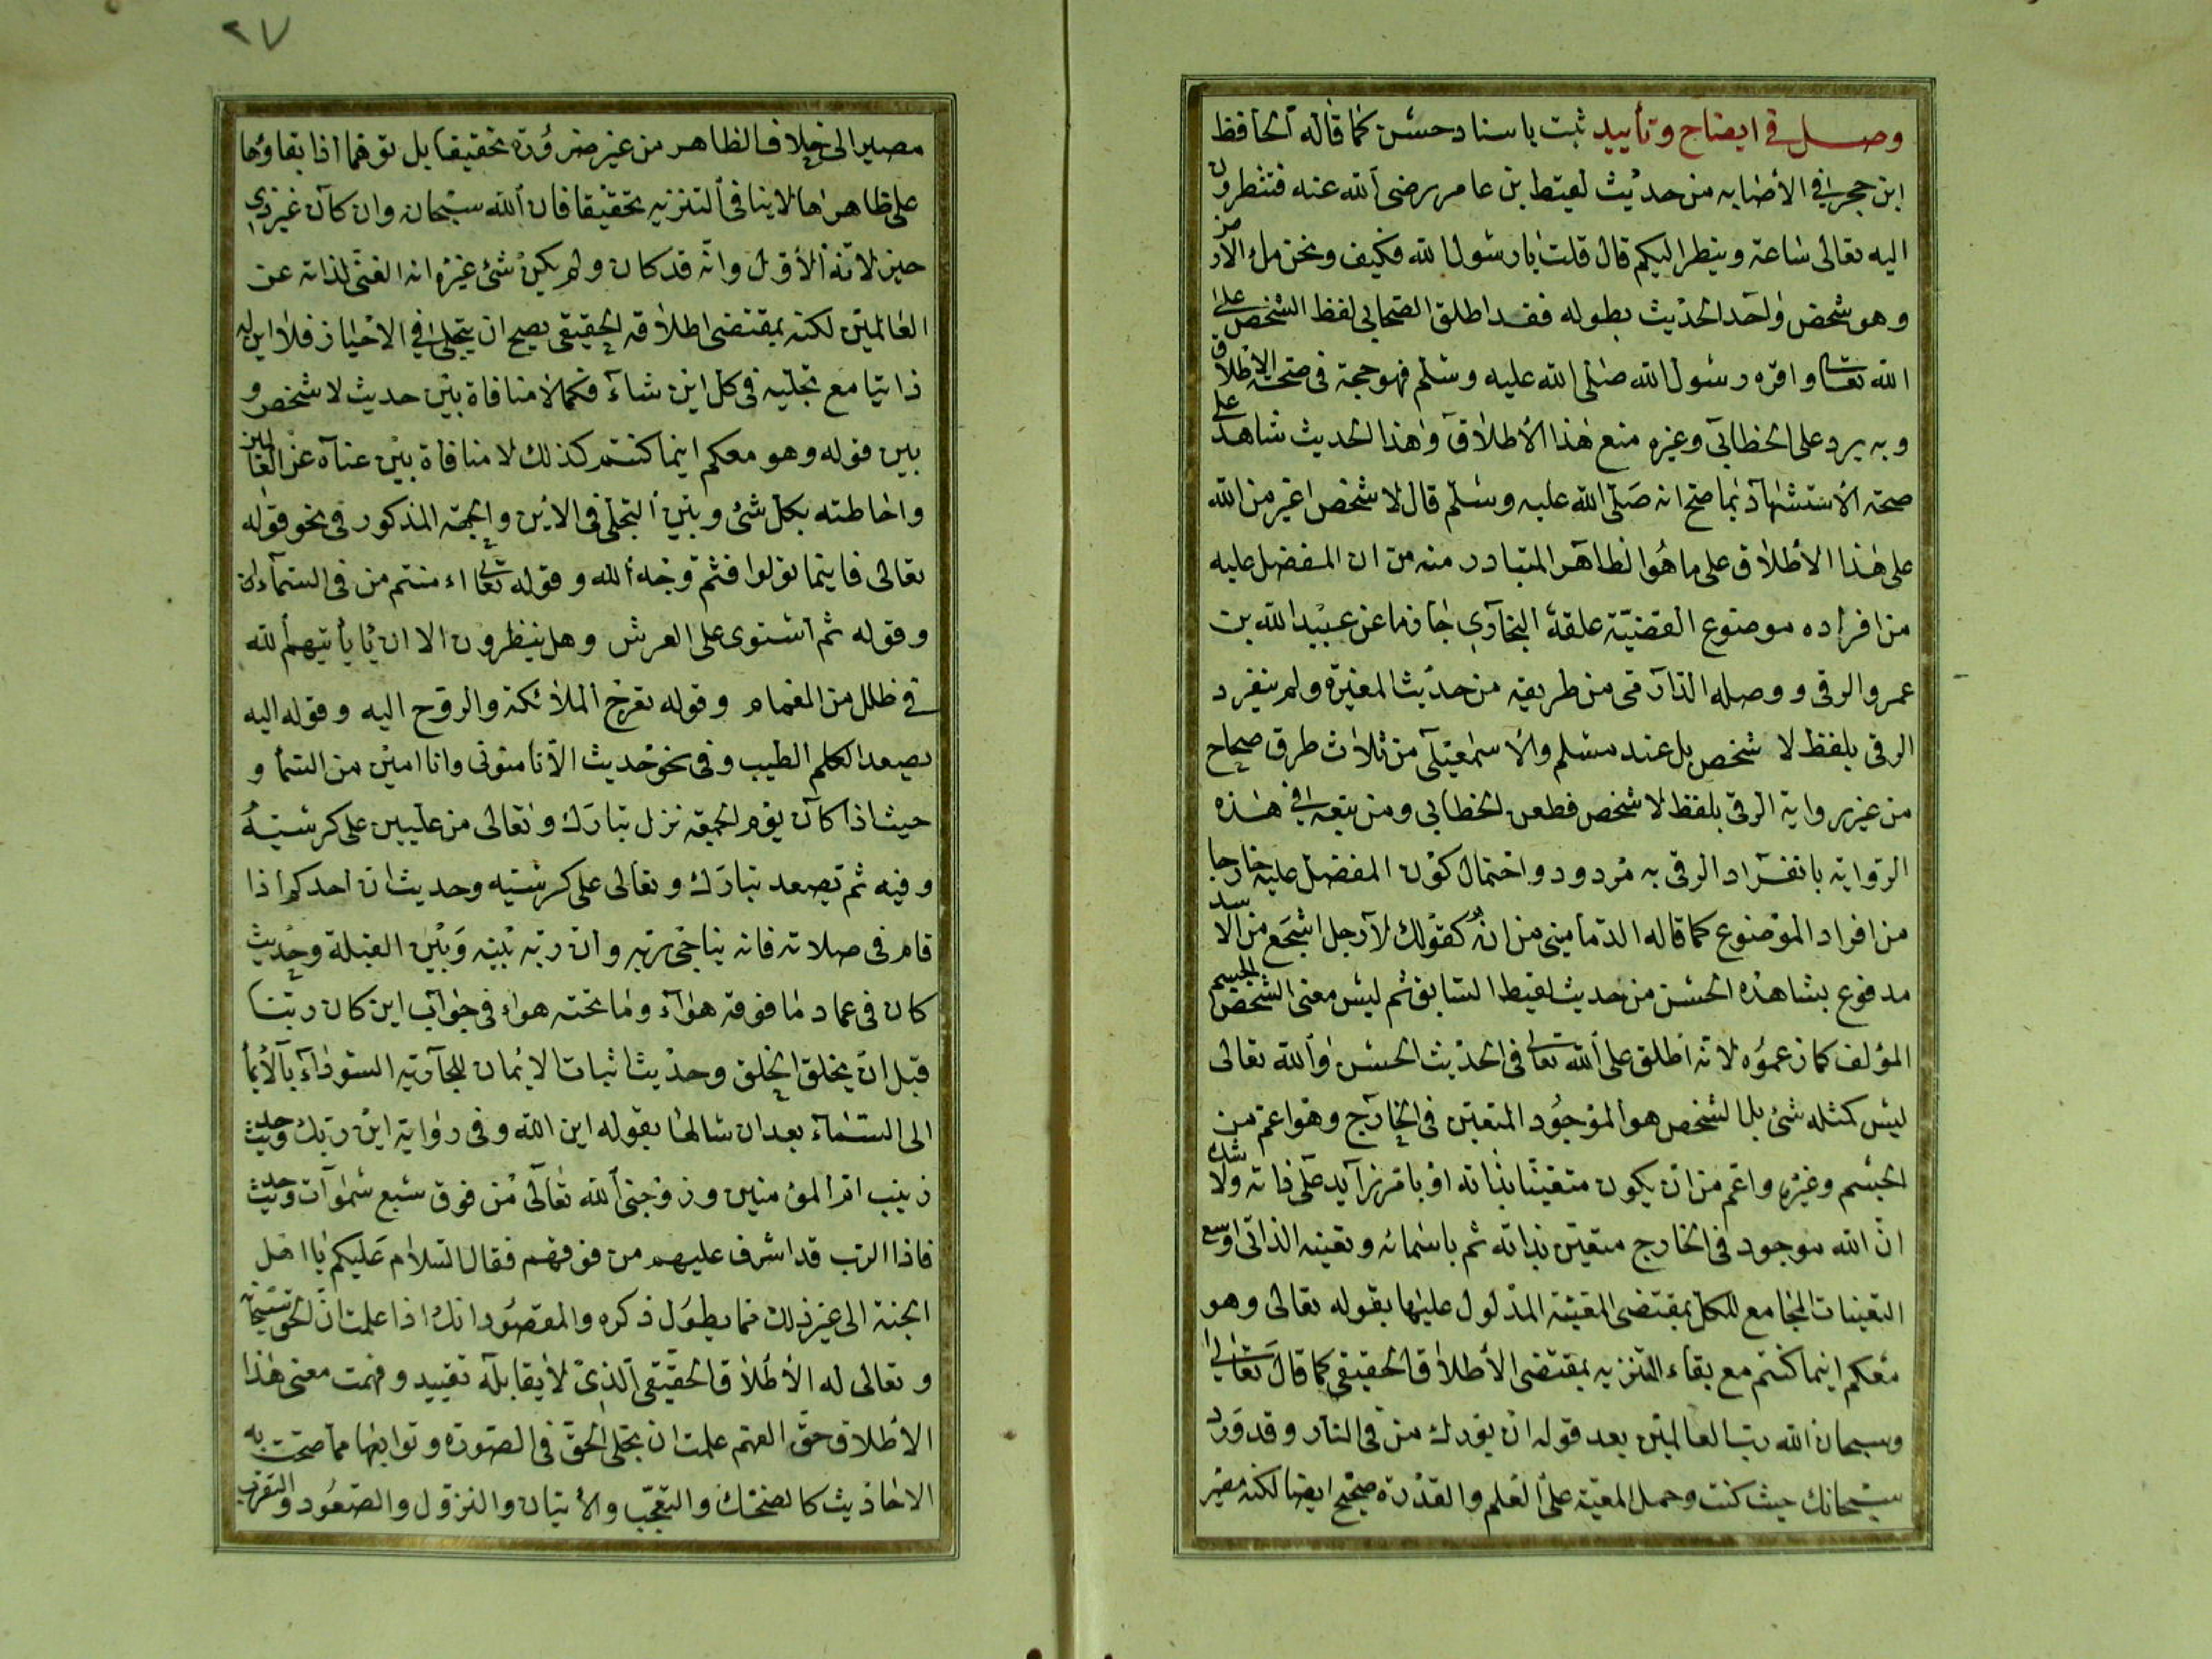 وصل في ايضاح وتأييد ثبت باسناد حسن كما قاله الحافظ
ابن حجر في الاصابه من حديث لقيط بن عامر رضى الله عنه فتنظرون
اليه تعالى ساعة وينظر اليكم قال قلت يا رسول الله فكيف ونحن ملء الارض
وهو شخص واحد الحديث بطوله فقد اطلق الصحابي لفظ الشخص على
الله تعالى واقره رسول الله صلى الله عليه وسلم فهو حجة في صحة الاطلاق
وبه يرد على الخطابي وغيره منع هذا الأطلاق وهذا الحديث شاهد على
صحة الأستشهاد بما صح انه صلى الله عليه وسلم قال لا شخص اغير من الله
على هذا الأطلاق على ما هو الظاهر المتبادر منه من ان المفضل عليه
من افراده موضوع القضيّة علقه البخاري جازما عن عبيد الله بن
عمرو الرقي ووصله الدارمي من طريقه من حديث المغيرة ولم ينفرد
الرقي بلفظ لا شخص بل عند مسلم والاسمعيلي من ثلاث طرق صحاح
من غير رواية الرقي بلفظ لا شخص فطعن الخطابي ومن تبعه في هذه
الرواية بانفراد الرقي به مردود واحتمال كون المفضل عليه خارجا
من افراد الموضوع كما قاله الدمامينى من انه كقولك لا رجل اشجع من الاسد
مدفوع بشاهده الحسن من حديث لقيط السابق ثم ليس معنى الشخص الجسم
المؤلف كما زعموه لانه اطلق على الله تعالى في الحديث الحسن والله تعالى
ليس كمثله شئ بل الشخص هو الموجود المتعين في الخارج وهو اعم من
الجسم وغيره واعم من ان يكون متعينا بذاته او بامر زايد على ذاته ولا شك
انّ الله موجود في الخارج متعين بذاته ثم باسمائه وتعينه الذاتي اوسع
التعينات الجامع للكل بمقتضى المعيّة المدلول عليها بقوله تعالى وهو
معكم اينما كنتم مع بقاء التنزيه بمقتضى الأطلاق الحقيقي كما قال تعالى
وسبحان الله رب العالمين بعد قوله ان بورك من في النار وقد ورد
سبحانك حيث كنت وحمل المعية على العلم والقدرة صحيح ايضا لكنه مصير
٢٧
مصير الى خلاف الظاهر من غير ضرورة تحقيقا بل توهما اذ ابقاؤها
على ظاهرها لا ينافى التنزيه تحقيقا فان الله سبحان وان كان غير ذي
حيز لانه الأول وانه قد كان ولم يكن شئ غيره انه الغنى لذاته عن
العالمين لكنه بمقتضى اطلاقه الحقيقي يصح ان يتجلى في الاحياز فلا اين له
ذاتيا مع تجليه في كل اين شاء فكما لا منافاة بين حديث لا شخص و
بين قوله وهو معكم اينما كنتم كذلك لا منافاة بين غناه عن العالمين
واحاطته بكل شئ وبين التجلى في الاين والجهة المذكور في نحو قوله
تعالى فاينما تولوا فثم وجه الله وقوله تعالى اءمنتم من في السماء ان
وقوله ثم استوى على العرش وهل ينظرون الا ان يأتيهم الله
في ظلل من الغمام وقوله تعرج الملائكة والروح اليه وقوله اليه
يصعد الكلم الطيب وفى نحو حديث الا تأمنونى وانا امين من السما و
حيث اذا كان يوم الجمعة نزل تبارك وتعالى من عليين على كرسيّه
وفيه ثم يصعد تبارك وتعالى على كرسيه وحديث ان احدكم اذا
قام في صلاته فانه يناجى ربه وان ربه بينه وبين القبلة وحديث
كان في عماد ما فوقه هواء وما تحته هواء في جواب اين كان ربنا
قبل ان يخلق الخلق وحديث اثبات الايمان للجارية السوداء بالأيما
الى السماء بعد ان سالها بقوله اين الله وفى رواية اين ربك وحديث
زينب ام المؤمنين وزوجنى الله تعالى من فوق سبع سموات وحديث
فاذا الرب قد اشرف عليهم من فوقهم فقال السلام عليكم يا اهل
الجنة الى غير ذلك مما يطول ذكره والمقصود انك اذا علمت انّ الحق سبحانه
وتعالى له الأطلاق الحقيقي الذي لا يقابله تقييد وفهمت معنى هذا
الأطلاق حق الفهم علمت ان تجلى الحق في الصورة وتوابعها مما صحت به
الاحاديث كالضحك والتعجب والأتيان والنزول والصعود والتقرب